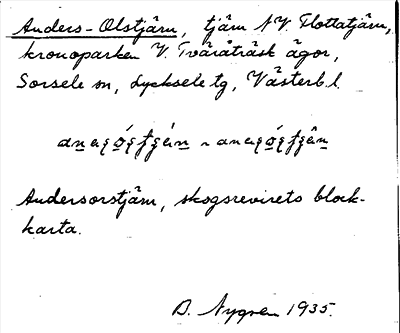 Anders-Olstjärn, tjärn NV. Flottatjärn,
kronoparken V. Tväråträsk ägor,
Sorsele sn, Lycksele tg, Västerb. l.
Andersorstjärn, skogsrevirets block-
karta.
B. Nygren 1935.